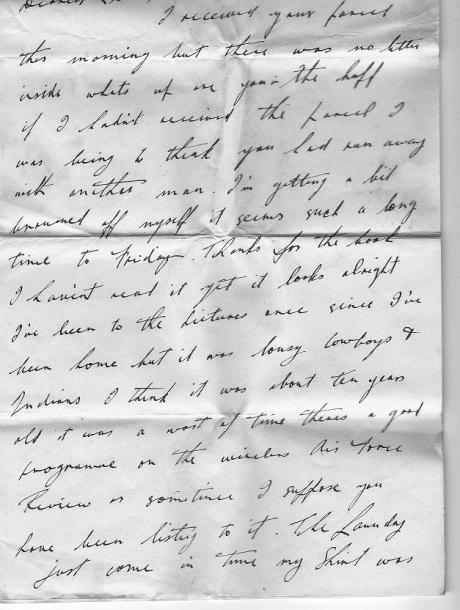 Dearest
I received your parcel
this morning but there was no letter
inside whats up are you in the huff
if I hadn't received the parcel I
was being to think you had run away
with another man. I'm getting a bit
browned off myself it seems such a long
time to Friday. Thanks for the book
I haven't read it yet it looks alright
I've been to the pictures once since I've
been home but it was lousy Cowboys &
Indians I think it was about ten years
old it was a wast of time theres a good
programme on the wireless Air Force
Review or sometince I suffose you
have been listing to it. The Laundry
just come in time my Shirt was